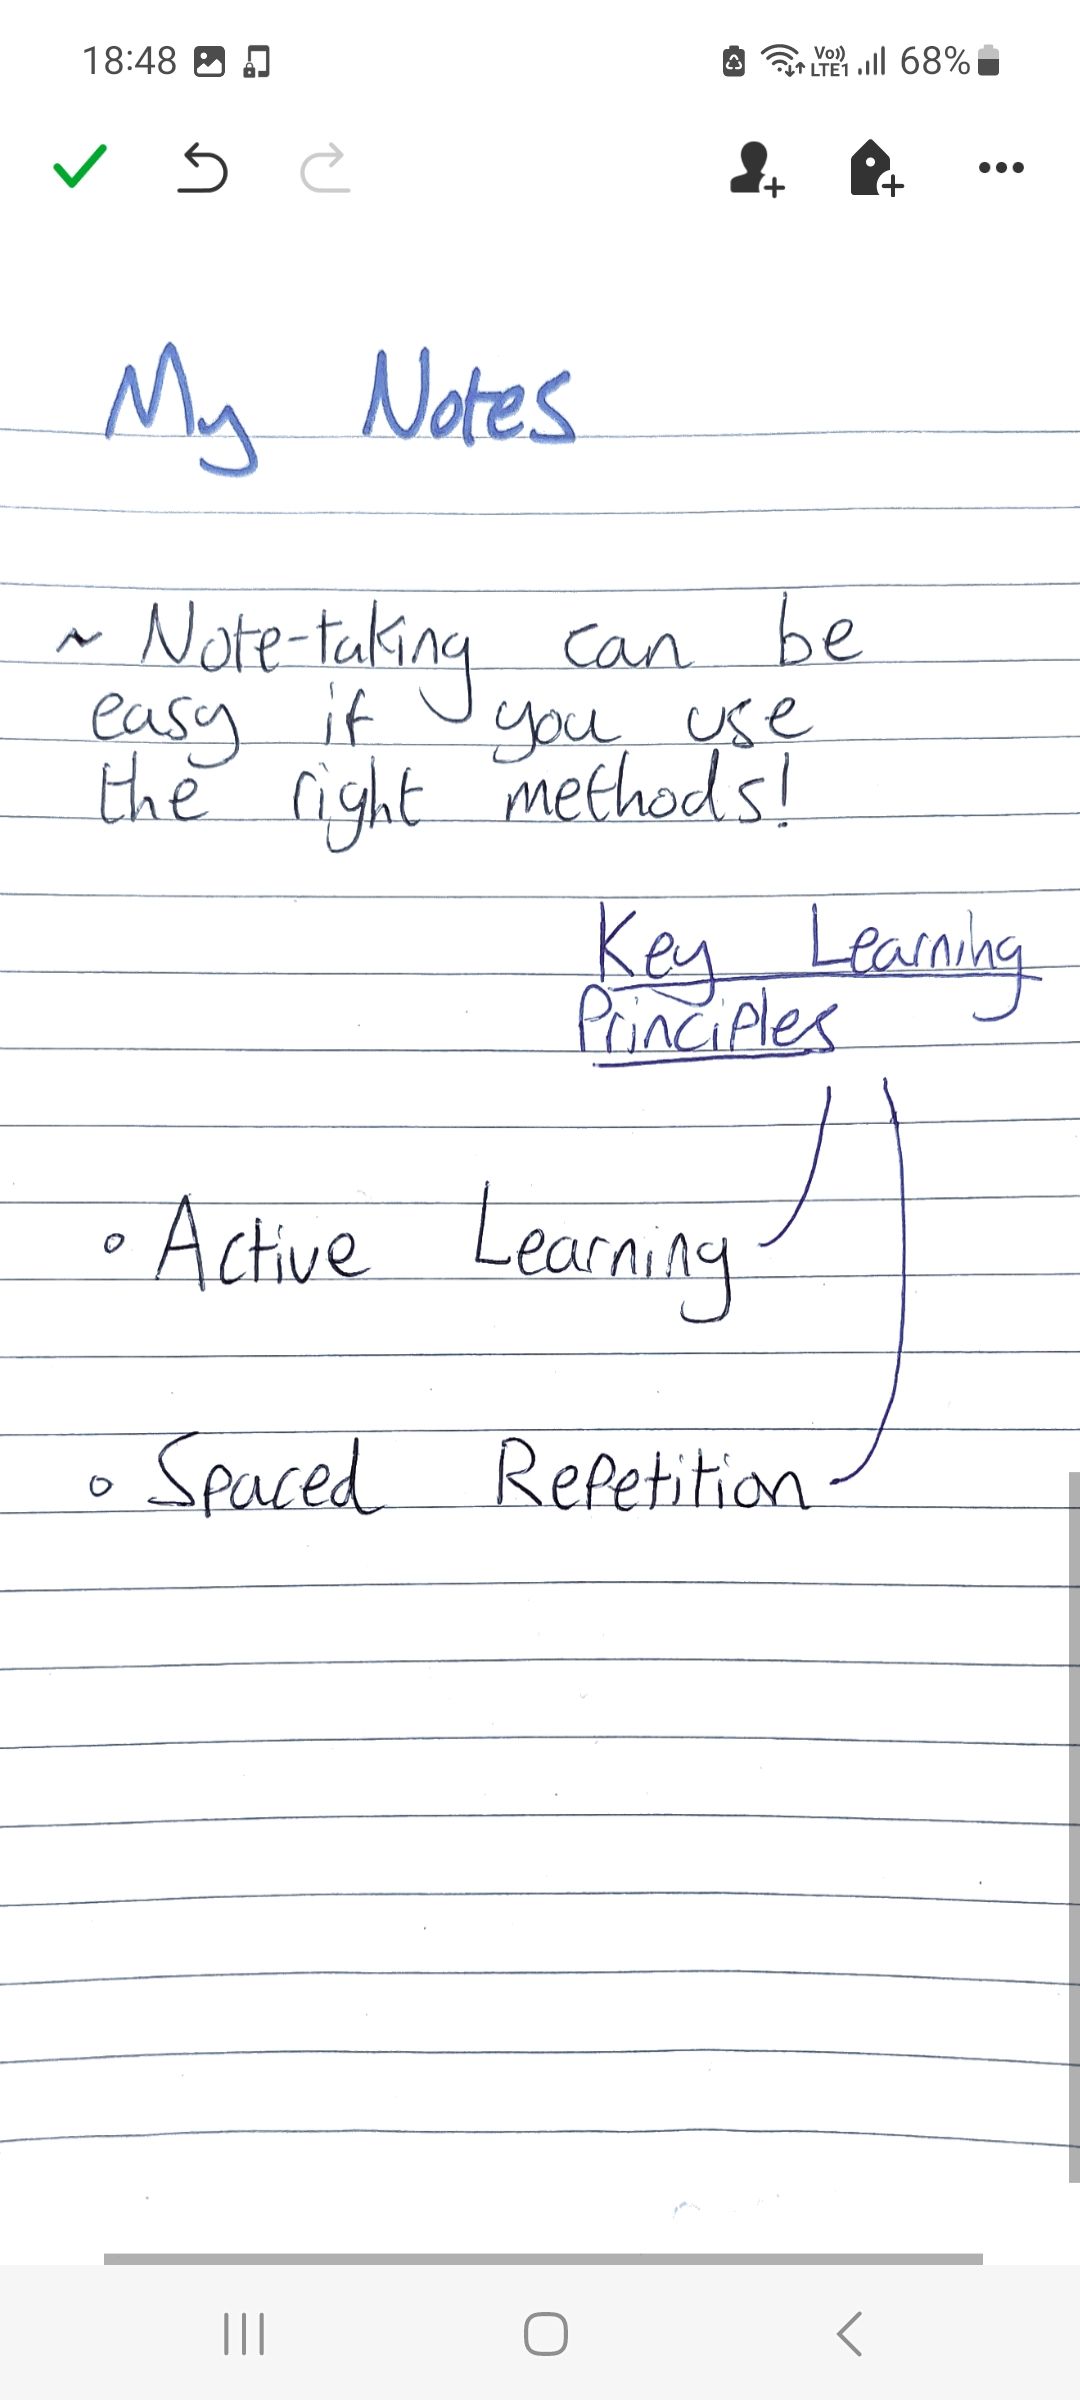 18:48 Vo)) LTE1 68%
My Notes
~ Note-taking can be
easy if you use
the right methods!
Key Learning
Principles
• Active Learning
• Spaced Repetition